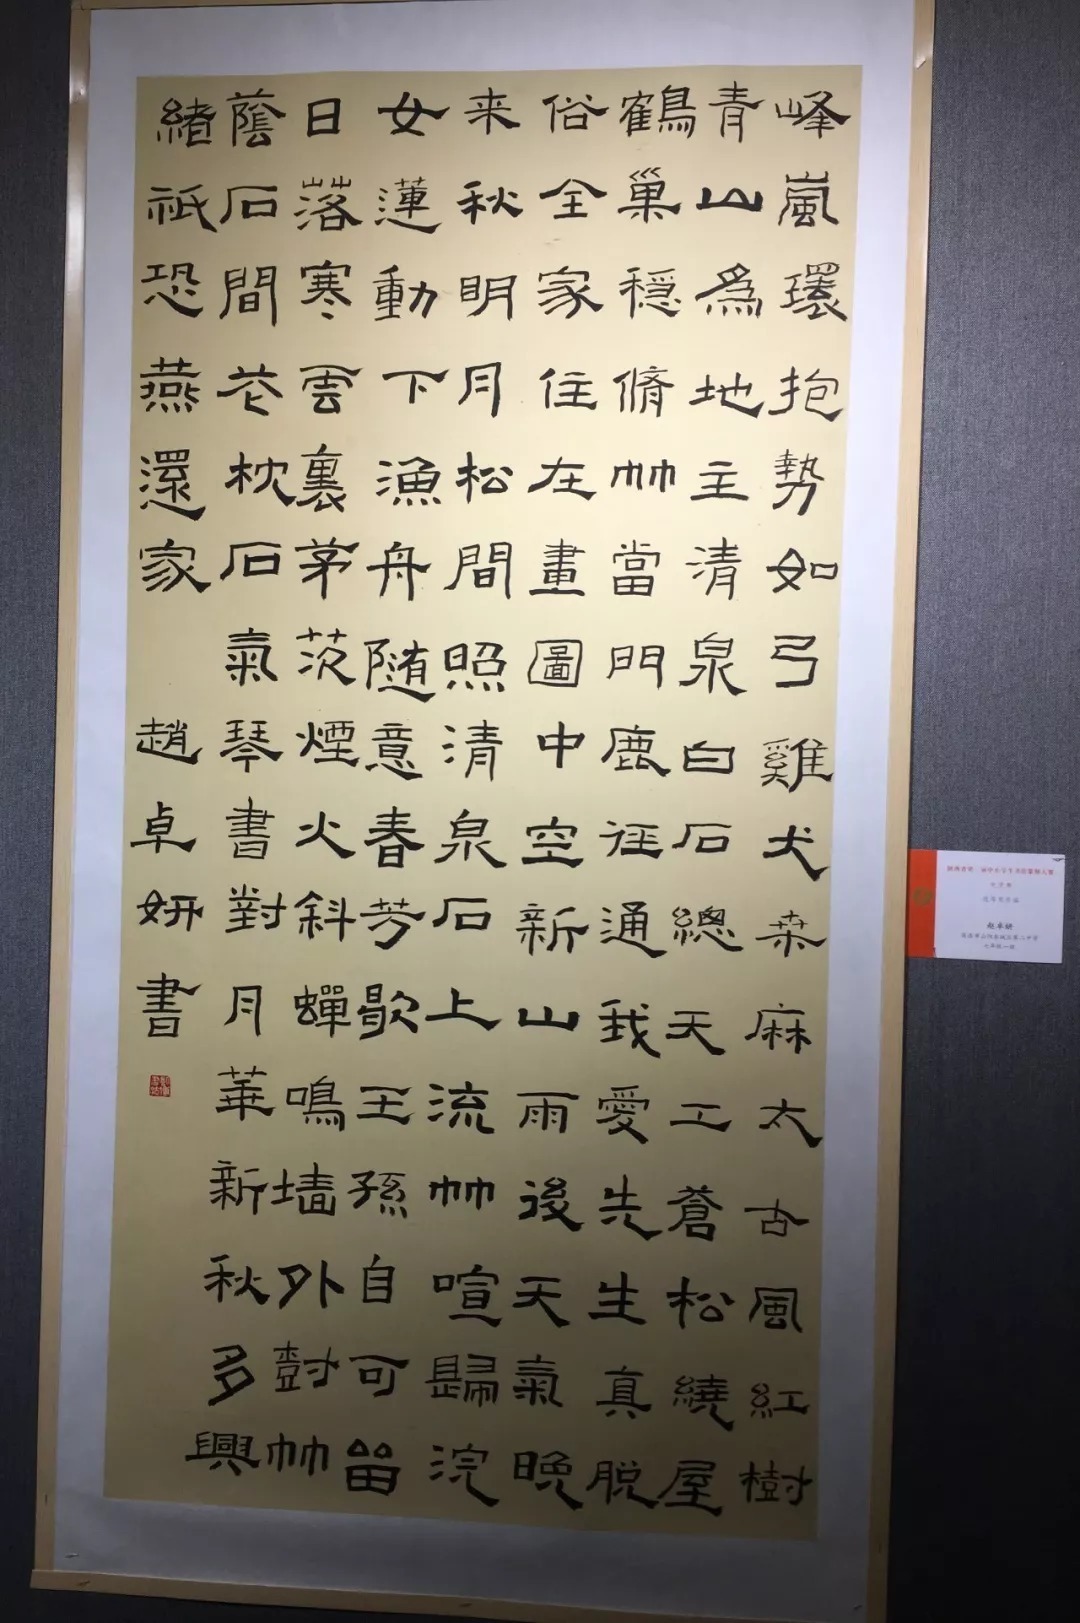 峰嵐環抱勢如弓雞犬桒麻太古風紅樹
青山爲地主清泉白石總天工蒼松繞屋
鶴巢穩脩竹當門鹿徑通我愛先生真脫
俗全家住在畫圖中空新山雨後天氣晚
来秋明月松間照清泉石上流竹喧歸浣
女蓮動下漁舟随意春芳歇王孫自可留
日落寒雲裏茅茨煙火斜蟬鳴墻外樹竹
蔭石間花枕石氣琴書對月華新秋多興
緒祇恐燕還家 趙卓妍書
赵卓妍